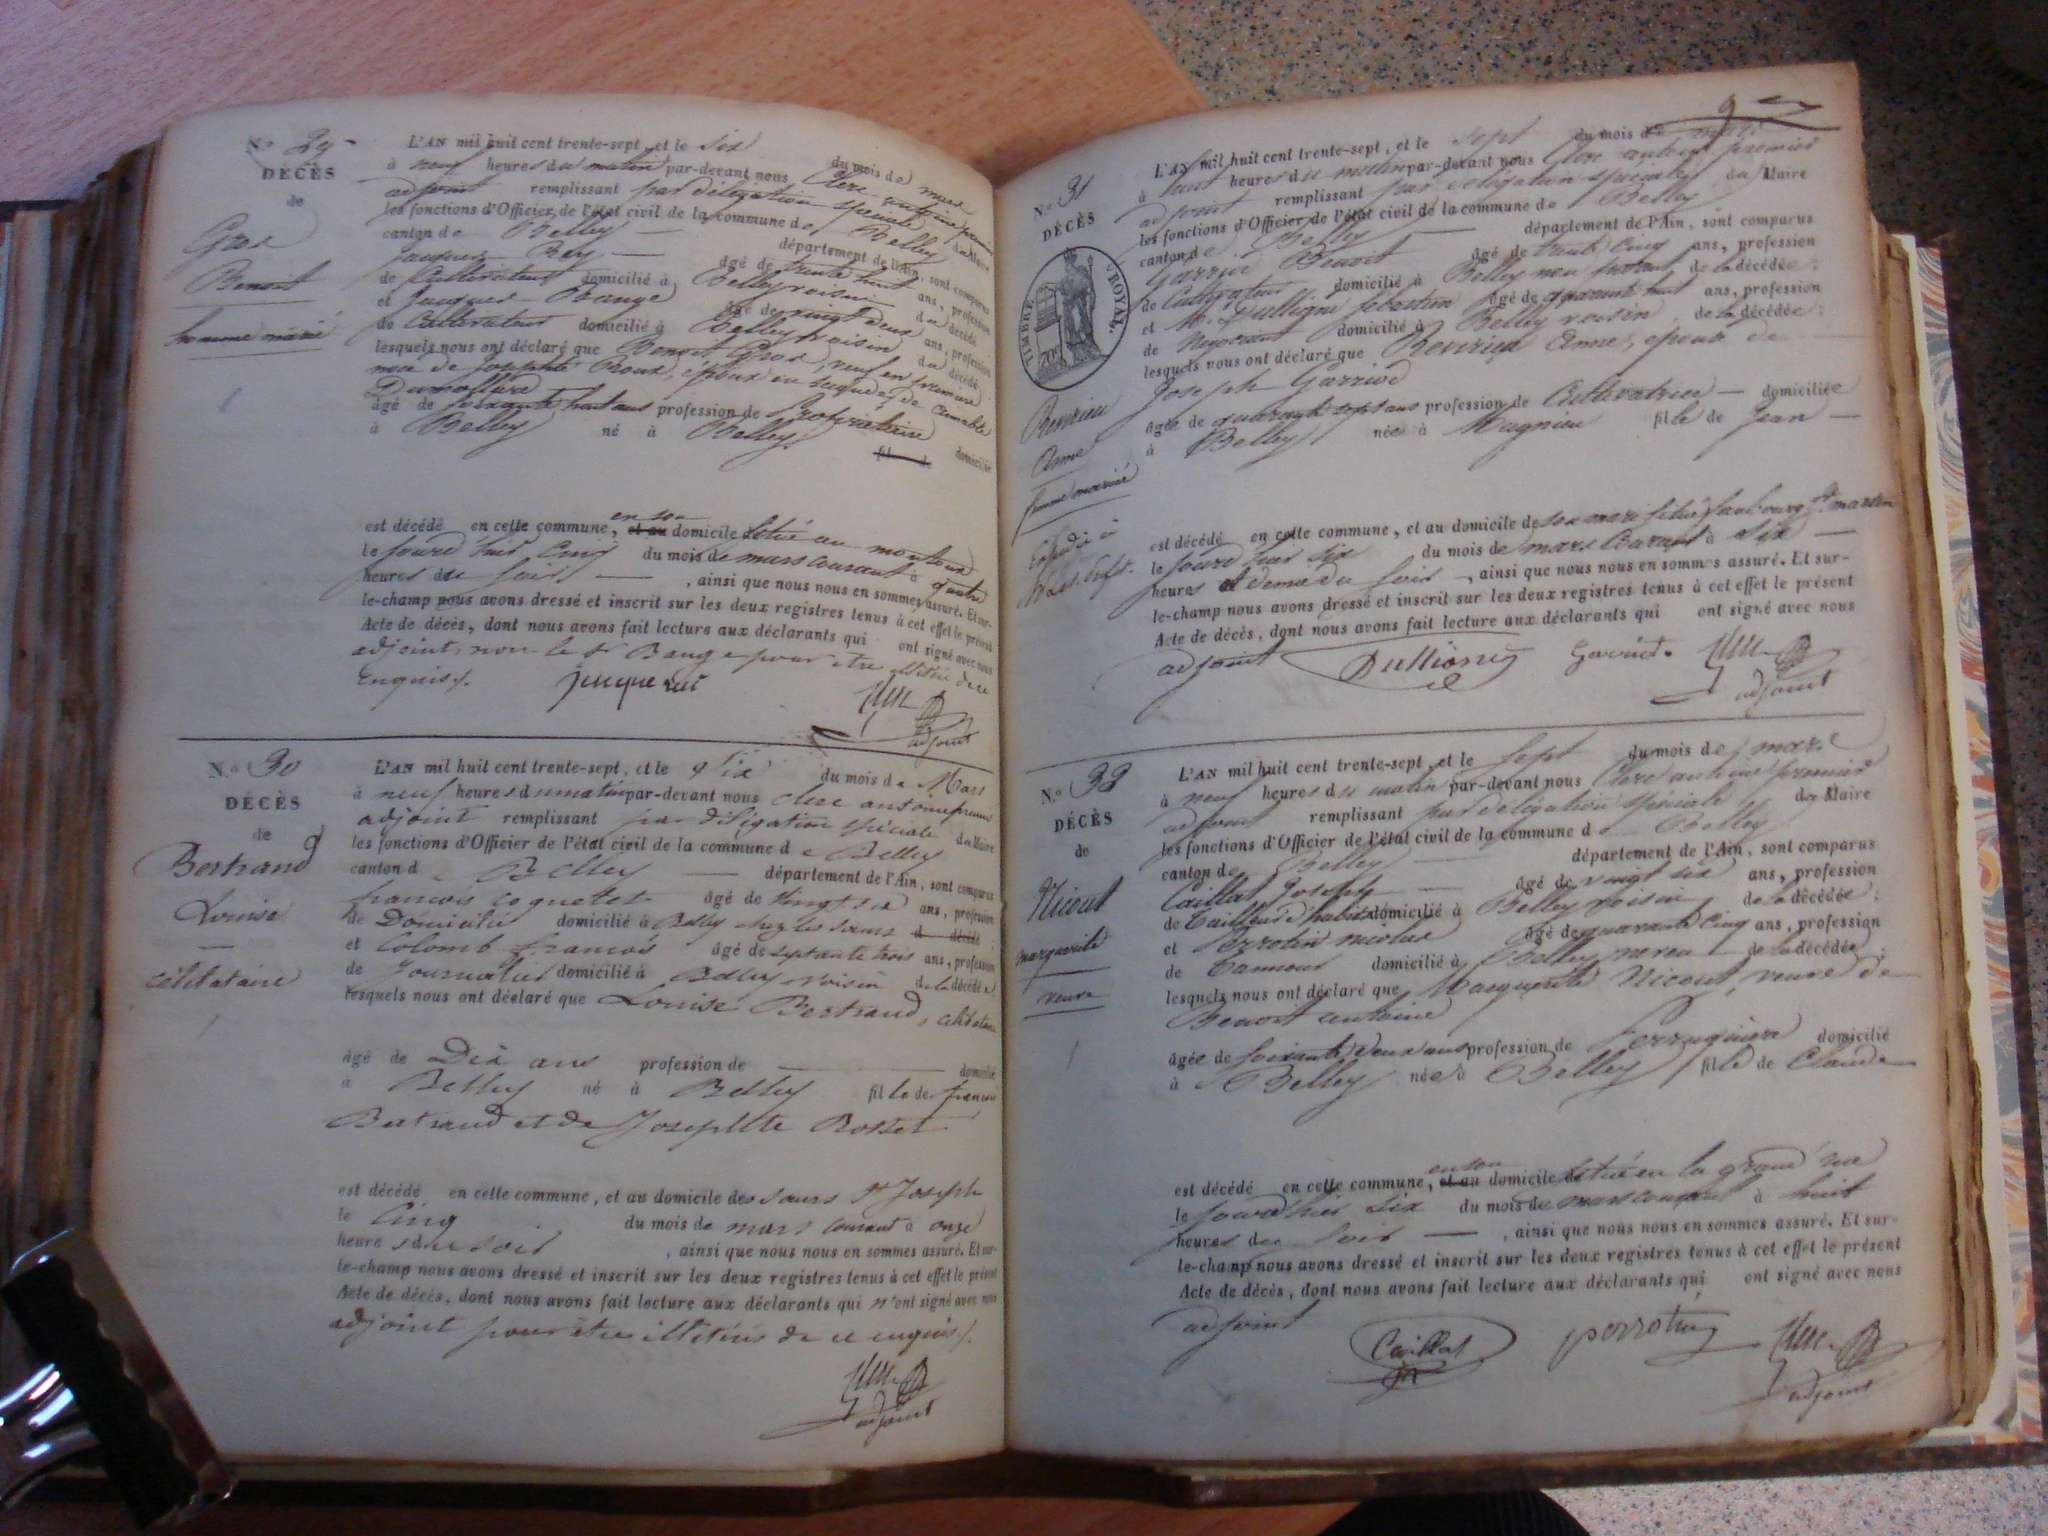 N.o 29
DÉCÈS
de
Gros
Benoit
homme marié
L'AN mil huit cent trente-sept, et le six du mois de mars
à neuf heures du matin par-devant nous Clerc antoine premier
adjoint remplissant par délégation spéciale du Maire
les fonctions d'Officier de l'état civil de la commune de Belley
canton de Belley — département de l'Ain, sont comparus
Jacques Rey — âgé de trente huit ans, profession
de Cultivateur domicilié à Belley voisin du décédé
et Jacques Bange âgé de vingt deux ans, profession
de Cultivateur domicilié à Belley voisin du décédé
lesquels nous ont déclaré que Benoit Gros, veuf en premiere
noce de Josephte Roux, époux en seconde de
âgé de soixante huit ans profession de Propriétaire domicilié
à Belley né à Belley. fil de
est décédé en cette commune, et au en son domicile situé au
le jourd'hui Cinq du mois de mars courant à quatre
heures du soir — , ainsi que nous nous en sommes assuré. Et sur-
le-champ nous avons dressé et inscrit sur les deux registres tenus à cet effet le présent
Acte de décès, dont nous avons fait lecture aux déclarants qui ont signé avec nous
adjoint, non le Sr Bange pour etre illitéré de ce
Enquis/.
adjoint
N.o 30
DÉCÈS
de
Bertrand
Louise
—
célibataire
L'AN mil huit cent trente-sept, et le six du mois de Mars
à neuf heures du matin par-devant nous clerc antoine premier
adjoint remplissant par déligation spéciale du Maire
les fonctions d'Officier de l'état civil de la commune de Belley
canton de Belley — département de l'Ain, sont comparus
francois coquelet âgé de vingt six ans, profession
de Domestic domicilié à Belley chez les sœurs d décédé ;
et Colomb francois âgé de septante trois ans, profession
de Journalier domicilié à Belley voisin de la décédée
lesquels nous ont déclaré que Louise Bertrand, célibataire
âgé de Dix ans profession de — domicilié
à Belley né à Belley fille de francois
Bertrand et de Josephte Rosset
est décédé en cette commune, et au domicile des sœurs St Joseph
le Cinq du mois de mars courant à onze
heures du soir , ainsi que nous nous en sommes assuré. Et sur-
le-champ nous avons dressé et inscrit sur les deux registres tenus à cet effet le présent
Acte de décès, dont nous avons fait lecture aux déclarants qui n'ont signé avec nous
adjoint pour être illitérés de ce enquis/.
adjoint
9
N.o 31
DÉCÈS
TIMBRE ROYAL
70c
Revirieu
Anne
femme mariée
Expédié à
L'AN mil huit cent trente-sept, et le sept du mois de mars
à huit heures du matin par-devant nous Clerc antoine premier
adjoint remplissant par délégation spéciale du Maire
les fonctions d'Officier de l'état civil de la commune de Belley
canton de Belley — département de l'Ain, sont comparus
Benoit âgé de trente cinq ans, profession
de Cultivateur domicilié à Belley neveu de la décédée ;
et sébastien âgé de quarante huit ans, profession
de Négociant domicilié à Belley voisin de la décédée ;
lesquels nous ont déclaré que Revirieu Anne, epouse de —
Joseph
âgée de quarante sept ans profession de Cultivatrice — domiciliée
à Belley née à Magnieu fille de Jean —
est décédé en cette commune, et au domicile de son mari situé faubourg St martin
le jourd'hier six du mois de mars courant à six —
heures et demie du soir —, ainsi que nous nous en sommes assuré. Et sur-
le-champ nous avons dressé et inscrit sur les deux registres tenus à cet effet le présent
Acte de décès, dont nous avons fait lecture aux déclarants qui ont signé avec nous
adjoint
adjoint
N.o 32
DÉCÈS
de
Nicout
marguerite
veuve
L'AN mil huit cent trente-sept, et le sept du mois de mars
à neuf heures du matin par-devant nous Clerc antoine premier
adjoint remplissant par délégation spéciale du Maire
les fonctions d'Officier de l'état civil de la commune de Belley
canton de Belley — département de l'Ain, sont comparus
Caillat Joseph — âgé de vingt six ans, profession
de Tailleur d'habits domicilié à Belley voisin de la décédée ;
et Perrotin nicolas âgé de quarante cinq ans, profession
de Tanneur domicilié à Belley neveu de la décédée ;
lesquels nous ont déclaré que Marguerite Nicout, veuve de
Benoit antoine
âgée de soixante deux ans profession de domicilié
à Belley née à Belley fille de Claude
est décédé en cette commune, et au en son domicile situé en la grand'rue
le jourd'hier six du mois de mars courant à huit
heures du soir — , ainsi que nous nous en sommes assuré. Et sur-
le-champ nous avons dressé et inscrit sur les deux registres tenus à cet effet le présent
Acte de décès, dont nous avons fait lecture aux déclarants qui ont signé avec nous
adjoint Caillat perrotin
adjoint